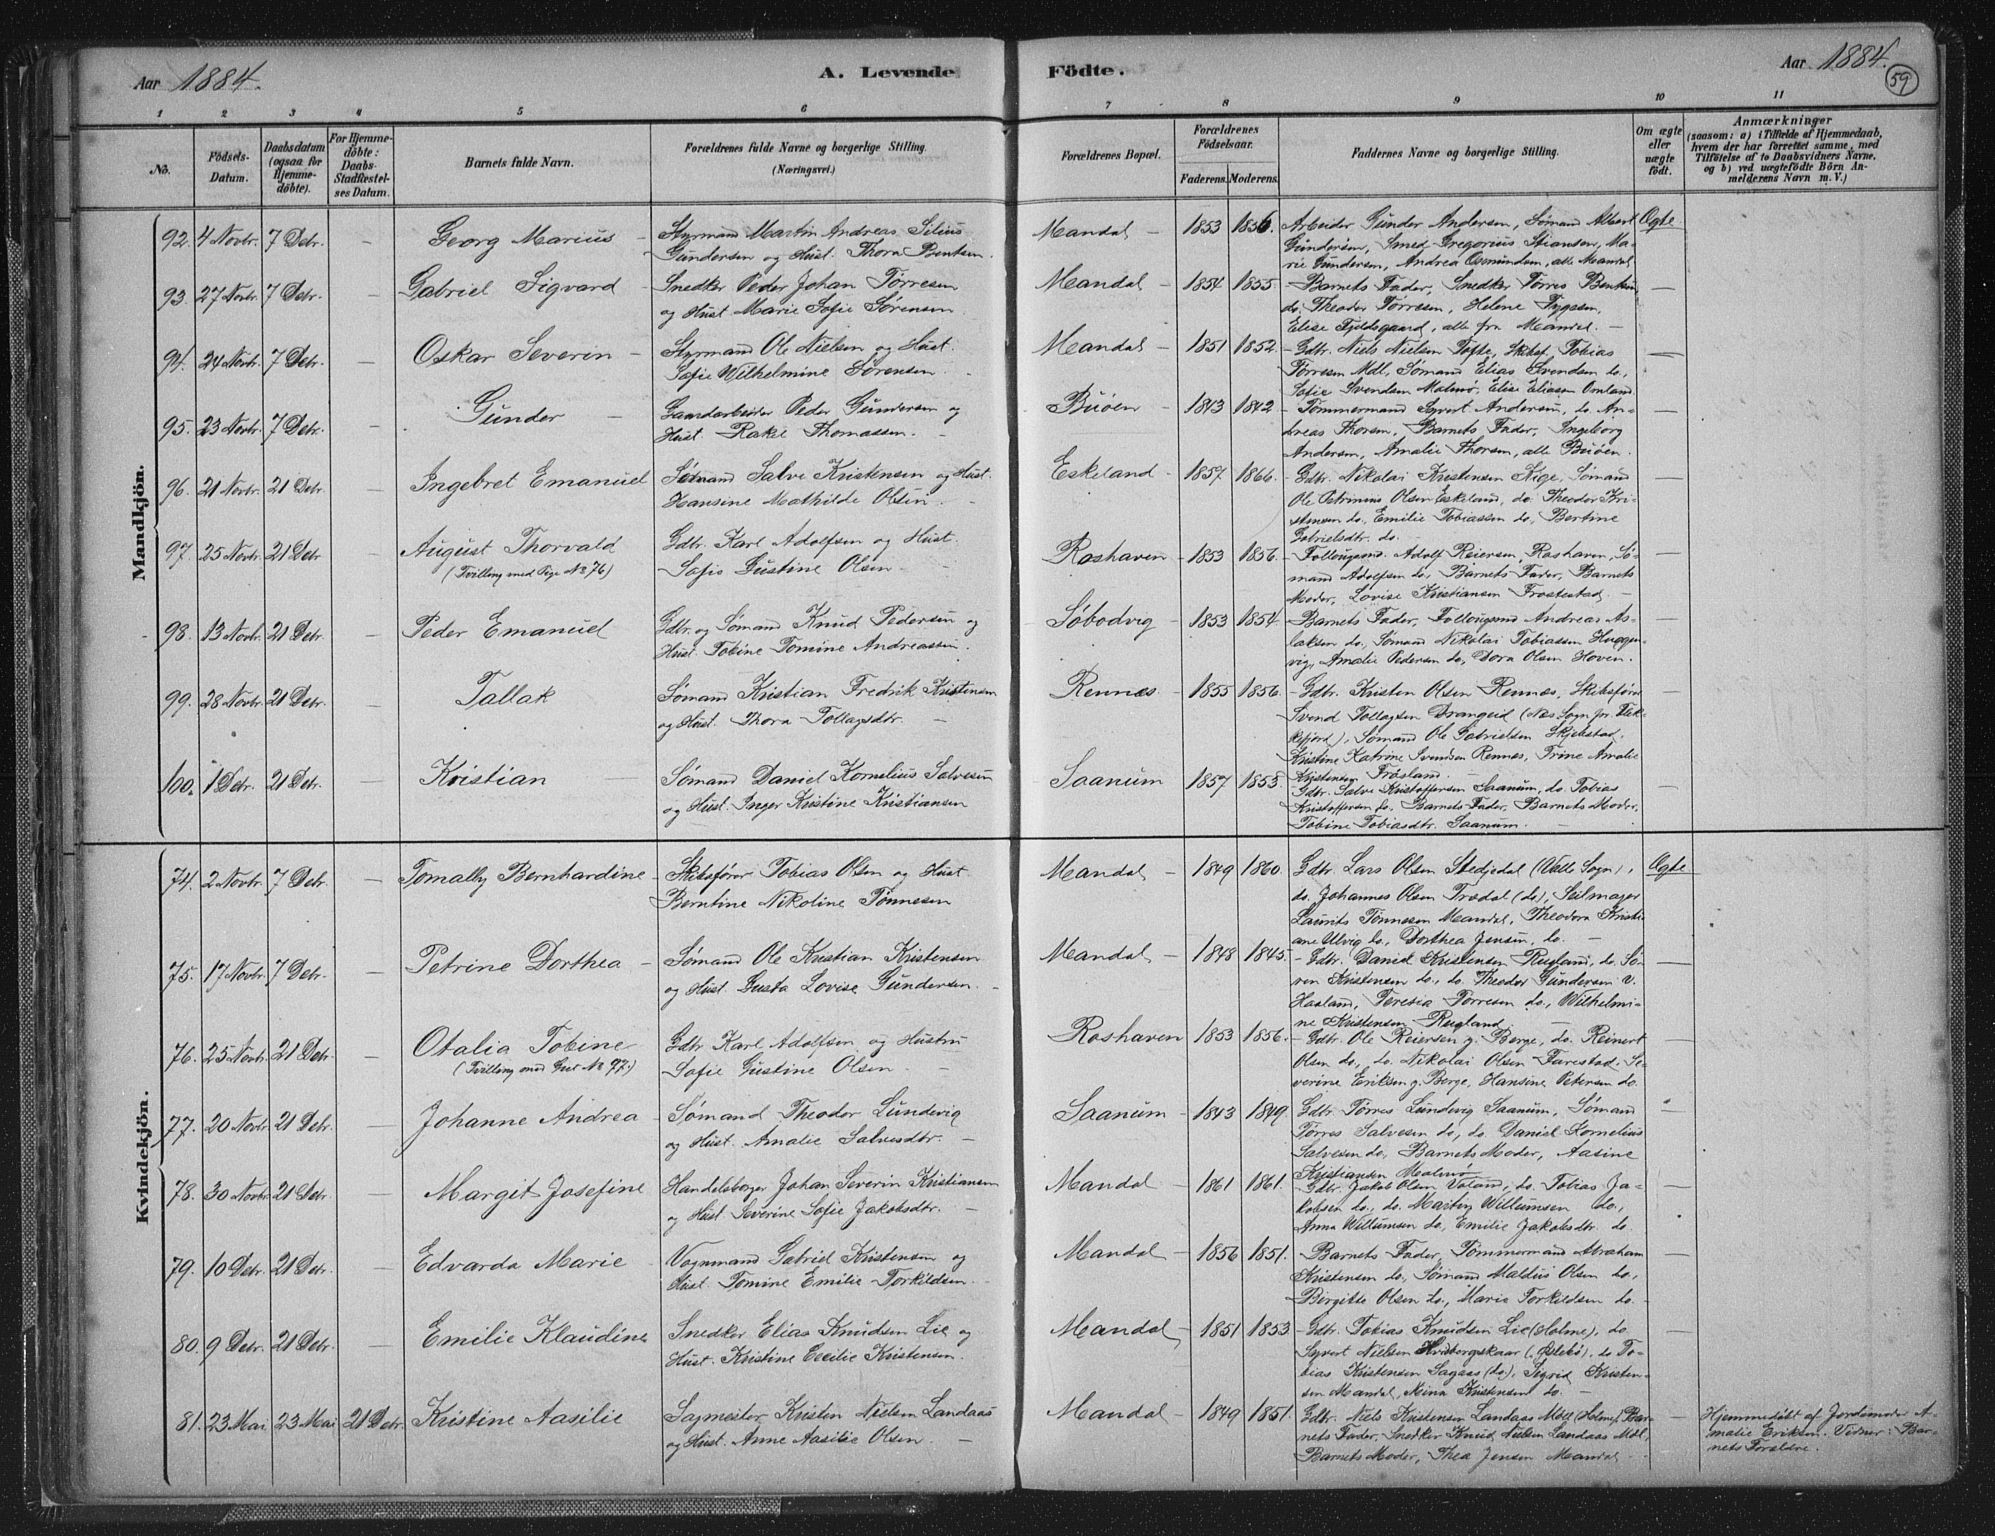 Aar 1884.
A. Levende
Födte.
Aar 1884.
59
1 2 3 4 5 6 7 8 9 10 11
No.
Födsels-Datum.
Daabsdatum (ogsaa for Hjemme-döbte).
For Hjemme-döbte: Daabs-Stadfæstel-ses Datum.
Barnets fulde Navn.
Forældrenes fulde Navne og borgerlige Stilling.
(Næringsvei.)
Forældrenes Bopæl.
Forældrenes Födselsaar.
Faderens. Moderens.
Faddernes Navne og borgerlige Stilling.
Om ægte eller uægte födt.
Anmærkninger
(saasom: a) i Tilfælde af Hjemmedaab,
hvem der har forrettet samme, med
Tilföielse af to Daabsvidners Navne,
og b) ved uægtefödte Börn An-
melderens Navn m. V.)
Mandkjön.
92. 4 Novbr. 7 Debr. — Georg Marius — Styrmand Martin Andreas Silius
Gundersen og Hust. Thora Bentsen.
Mandal — 1853 1856. Arbeider Gunder Andersen, Sømand Albert
Gundersen, Smed Gregorius Stiansen, Ma-
rie Gundersen, Andrea Osmundsen, alle Mandal
Ægte
93. 27 Novbr. 7 Debr. — Gabriel Sigvard — Snedker Peder Johan Tørresen
og Hust. Marie Sofie Sørensen.
Mandal — 1854 1855. — Barnets Fader, Snedker Tørres Bentsen,
do. Theodor Tørresen, Helene
Elise Fjeldsgaard, alle fra Mandal. —
94. 24 Novbr. 7 Debr. — Oskar Severin — Styrmand Ole Nielsen og Hust.
Sofie Wilhelmine Sørensen.
Mandal — 1851 1852. — Gdbr. Niels Nielsen Tofte, Skibsf. Tobias
Tørresen Mdl, Sømand Elias Svendsen do.,
Sofie Svendsen Malmø, Elise Eliasen Omland
95. 23 Novbr. 7 Debr. — Gunder — Gaardarbeider Peder Gundersen og
Hust. Rakel Thomassen. —
Buøen — 1843 1842. — Tømmermand Syvert Andersen, do. An-
dreas Thorsen, Barnets Fader, Ingeborg
Andersen, Amalie Thorsen, alle Buøen.
96. 21 Novbr. 21 Debr. — Ingebret Emanuel Sømand Salve Kristensen og Hust.
Hansine Mathilde Olsen. —
Eskeland — 1857 1866. — Gdbr. Nikolai Kristensen Nige, Sømand
Ole Petrinius Olsen Eskeland, do. Theodor Kri-
stensen do., Emilie Tobiassen do., Bertine
Gabrielsdtr. do.
97. 25 Novbr. 21 Debr. — August Thorvald
(Tvilling med Pige No 76)
Gdbr. Karl Adolfsen og Hust.
Sofie Gustine Olsen. —
Roshaven — 1853 1856. — Follougsmd. Adolf Reiersen, Roshaven, Sø-
mand Adolfsen do., Barnets Fader, Barnets
Moder, Lovise Kristiansen Frostestad. —
98. 13 Novbr. 21 Debr. — Peder Emanuel
Gdbr. og Sømand Knud Pedersen og
Hust. Tobine Tomine Andreassen.
Søbodvig — 1853 1854. — Barnets Fader, Follougsmd Andreas As-
laksen do., Sømand Nikolai Tobiassen Huggen-
vig, Amalie Pedersen do., Dora Olsen Hoven.
99. 28 Novbr. 21 Debr. — Tallak
Sømand Kristian Fredrik Kristensen
og Hust. Thora Tollagsdtr. —
Rennes — 1855 1856. — Gdbr. Kristen Olsen Rennes, Skibsfører
Svend Tollagsen Drangeid (Nes Sogn pr. Flek-
kefjord), Sømand Ole Gabrielsen Skjebstad,
Kristine Katrine Svendsen Rennes, Trine Amalie
Kristensen Frøsland. —
100. 1 Debr. 21 Debr. — Kristian — Sømand Daniel Kornelius Salvesen
og Hust. Inger Kristine Kristiansen
Saanum — 1857 1853. — Gdbr. Salve Kristoffersen Saanum, do. Tobias
Kristoffersen do. Barnets Fader, Barnets Moder,
Tobine Tobiasdtr. Saanum. —
Kvindekjön.
74. 2 Novbr. 7 Debr. — Tomally Bernhardine — Skibsfører Tobias Olsen og Hust
Berntine Nikoline Tønnesen
Mandal — 1849 1860. Gdbr. Lars Olsen Stedjedal (Valle Sogn),
do. Johannes Olsen Trædal (do), Seilmager
Laurits Tønnesen Mandal, Theodora Kristi-
ane Ulvig do., Dorthea Jensen, do. —
Ægte
75. 17 Novbr. 7 Debr. — Petrine Dorthea — Sømand Ole Kristian Kristensen
og Hust. Gusta Lovise Gundersen. —
Mandal — 1848 1845. — Gdbr. Daniel Kristensen Rugland, do. Sø-
ren Kristensen do., do. Theodor Gundersen v.
Haaland, Teresia Torresen do., Wilhelmi-
ne Kristensen Rugland —
76. 25 Novbr. 21 Debr. — Otalia Tobine
(Tvilling med Gut No 97.)
Gdbr. Karl Adolfsen og Hustru
Sofie Gustine Olsen. —
Roshaven 1853 1856. — Gdbr. Ole Reiersen g. Berge, do. Reinert
Olsen do., do. Nikolai Olsen Farestad, Se-
verine Eriksen g. Berge, Hansine Petersen do.
77. 20 Novbr. 21 Debr. — Johanne Andrea — Sømand Theodor Lundevig
og Hust. Amalie Salvesdtr. —
Saanum — 1843 1849. Gdbr. Tørres Lundevig Saanum, Sømand
Tørres Salvesen do., do. Daniel Kornelius
Salvesen do., Barnets Moder, Aasine
Kristiansen Malmø
78. 30 Novbr. 21 Debr. — Margit Josefine Handelsborger Johan Severin Kristiansen
og Hust. Severine Sofie Jakobsdtr. —
Mandal — 1861 1861. Gdbr. Jakob Olsen Voland, do. Tobias Ja-
kobsen do., do. Martin Willumsen do.,
Anna Willumsen do., Emilie Jakobsdtr. do.
79. 10 Debr. 21 Debr. — Edvarda Marie — Vognmand Gabriel Kristensen og
Hust. Tomine Emilie Torkildsen. —
Mandal — 1856 1851. — Barnets Fader, Tømmermand Abraham
Kristensen do., Sømand Maldius Olsen do.,
Birgitte Olsen do., Maria Torkildsen do. —
80. 9 Debr. 21 Debr. — Emilie Klaudine Snedker Elias Knudsen Lie og
Hust. Kristine Cecilie Kristensen.
Mandal — 1851 1853 — Gdbr. Tobias Knudsen Lie (Holme), do
Syvert Nielsen (Øslebø), do To-
bias Kristensen Sagaas (do), Sigrid Kristen-
sen Mandal, Nina Kristensen do. —
81. 23 Mai 23 Mai 21 Debr. Kristine Aasilie Sagmester Kristen Nielsen Landaas
og Hust. Anne Aasilie Olsen. —
Mandal — 1849 1851. Gdbr. Niels Kristensen Landaas Mdl (Holme), Bar-
nets Fader, Snedker Knud Nielsen Landaas Mdl,
Barnets Moder, Thea Jensen Mandal.
Hjemmedøbt af Jordemoder A-
malie Eriksen. Vidner: Bar-
nets Forældre.